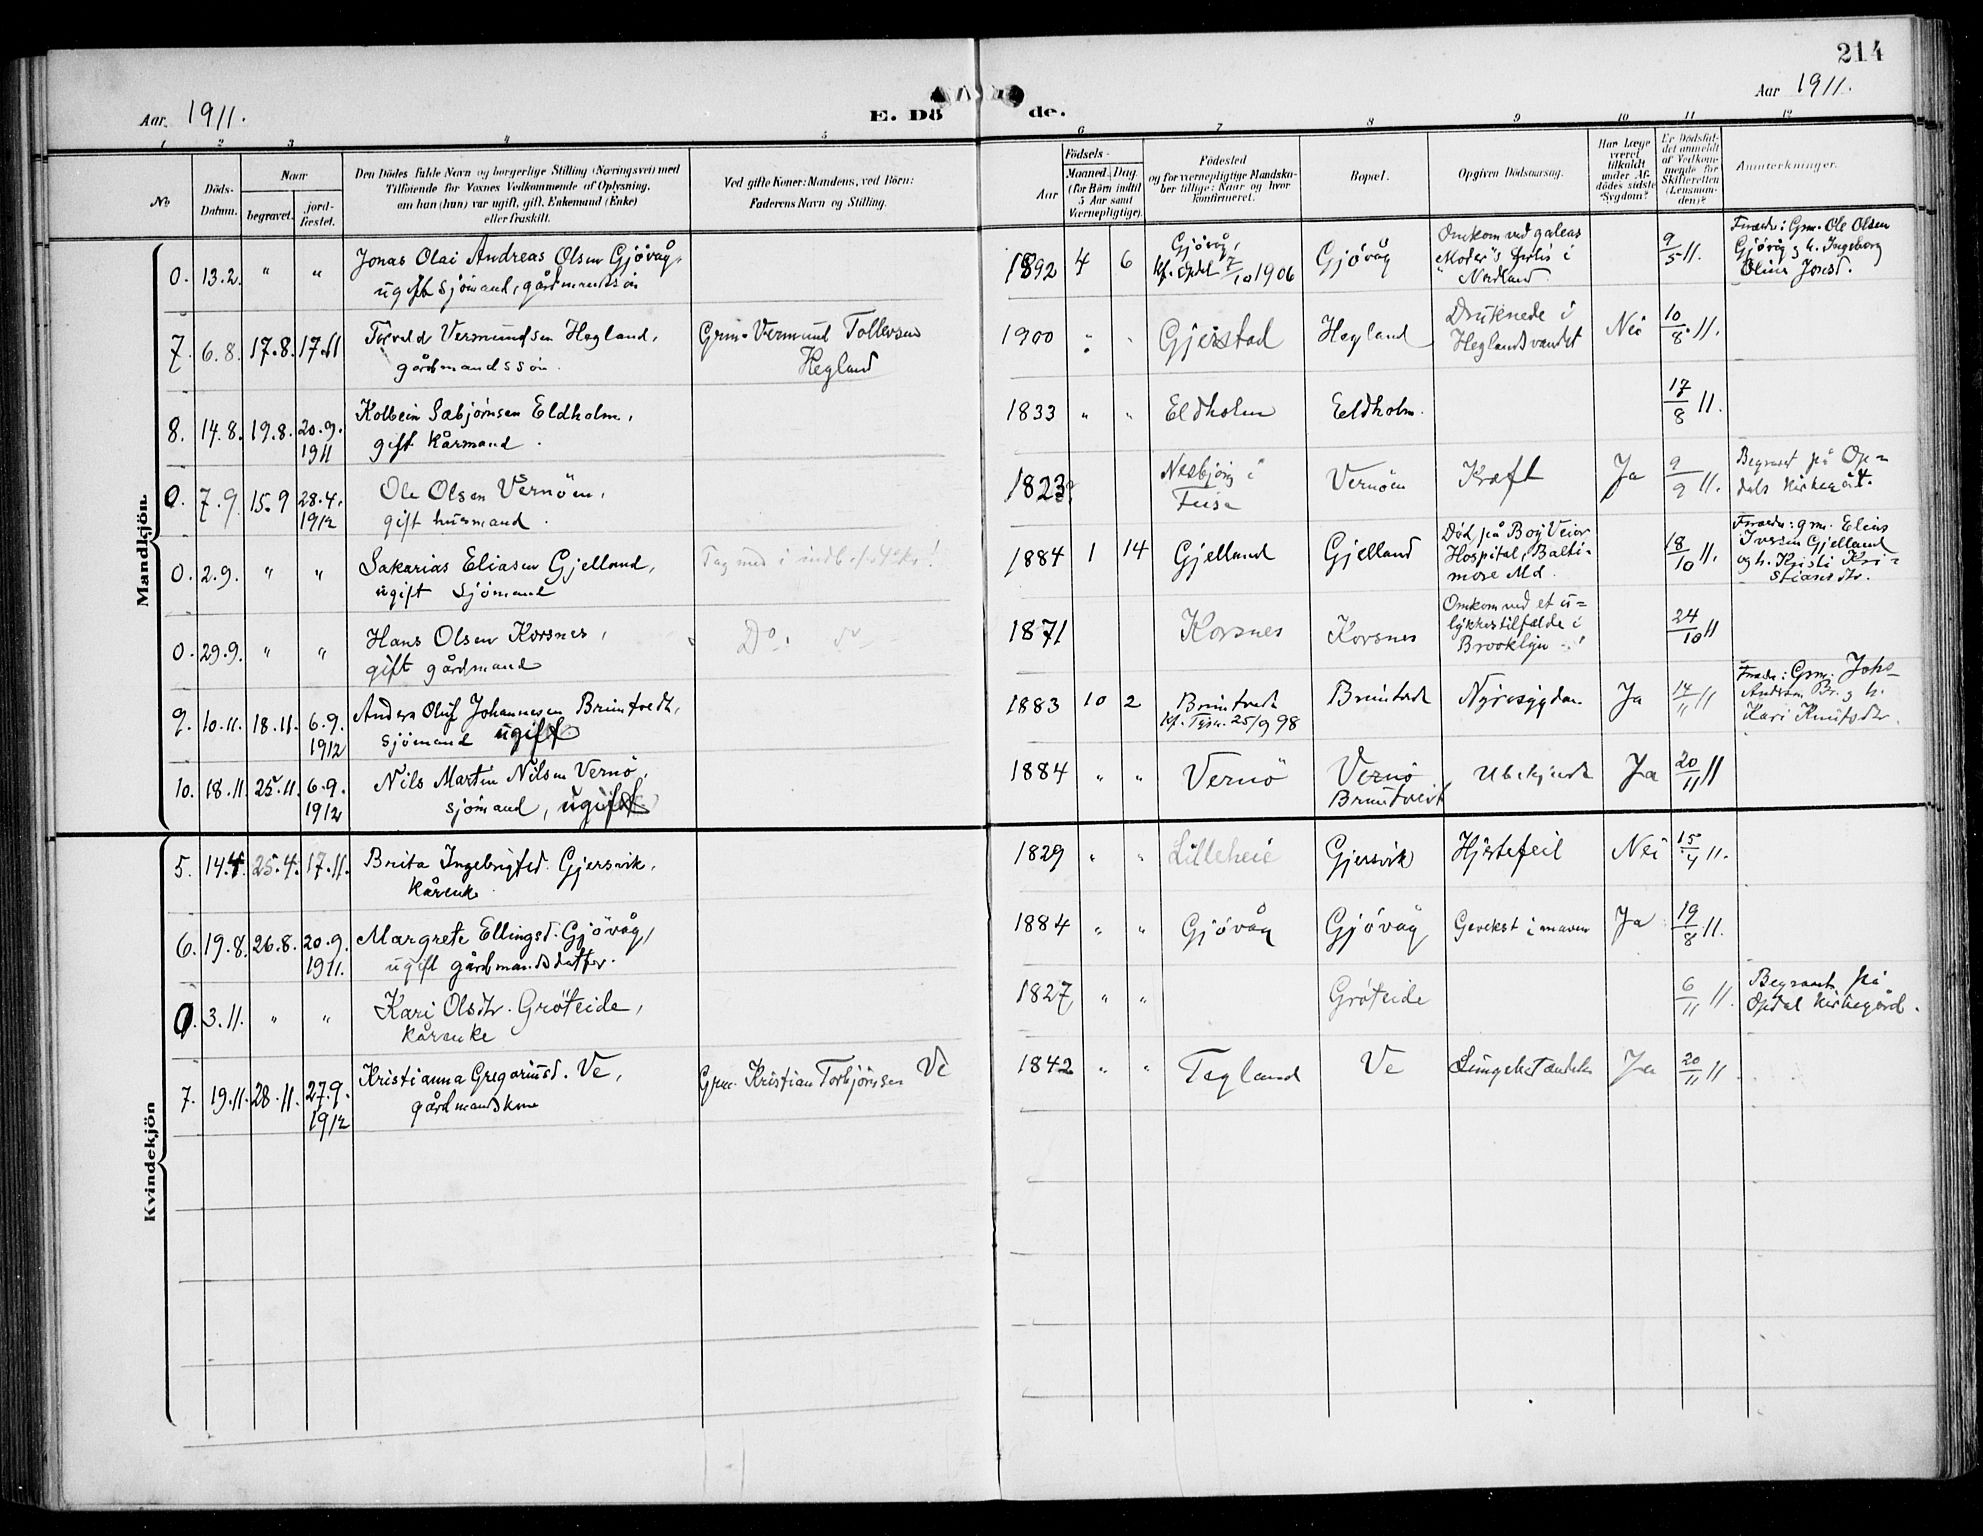 214
Aar 1911.
E. Dö
de.
Aar 1911.
1 2 3 4 5 6 7 8 9 10 11 12
No
Döds-
Datum.
Naar
begravet.
jord-
fæstet.
Den Dödes fulde Navn og borgerlige Stilling (Næringsvei) med
Tilföiende for Voxnes Vedkommende af Oplysning,
om han (hun) var ugift, gift, Enkemand (Enke)
eller fraskilt.
Ved gifte Koner: Mandens, ved Börn:
Faderens Navn og Stilling.
Födsels-
Aar
Maaned. Dag.
(for Börn indtil
5 Aar samt
Værnepligtige).
Födested
og for værnepligtige Mandska-
ber tillige: Naar og hvor
konfirmeret.
Bopæl.
Opgiven Dödsaarsag.
Har Læge
været
tilkaldt
under Af-
dödes sidste
Sygdom?
Er Dödsfal-
det anmeldt
af Vedkom-
mende for
Skifteretten
(Lensman-
den)?
Anmærkninger.
Mandkjön
0. 13.2. " " Jonas Olai Andreas Olsen Gjövåg,
ugift sjömand, gårdmandssön
1892 4 6 Gjövåg,
Kf. Opdal 7/10 1906
Gjövåg
Omkom ved galeas
"Moder"s forlis i
Nordland.
9/5 11.
Forældre: Grm. Ole Olsen
Gjövåg og h. Ingeborg
Oline Jonsd.
7. 6.8. 17.8. 17.11 Torvald Vermundsen Hegland,
gårdmandssön.
Grm. Vermund Tollevsen
Hegland
1900 " " Gjerstad Hegland
Druknede i
Heglandsvandet
Nei 10/8 11.
8. 14.8. 19.8. 20.9.
1911
Kolbein Sæbjörnsen Eldholm,
gift kårmand.
1833 " " Eldholm Eldholm. 17/8 11.
0. 7.9. 15.9 28.4.
1912
Ole Olsen Vernöen,
gift husmand.
1823 Nesbjörg i
Fuse
Vernöen Kræft Ja 9/9 11.
Begravet på Op-
dals kirkegård.
0. 2.9. " " Sakarias Eliasen Gjelland,
ugift sjömand
Tag med i
1884 1 14 Gjelland Gjelland
Död på Bay View
Hospital, Balti-
more Md.
18/10 11.
Forældre: grm. Elias
Iversen Gjelland
og h. Kristi Kri-
stiansdtr.
0. 29.9. " " Hans Olsen Korsnes,
gift gårdmand
Do.
1871 Korsnes Korsnes
Omkom ved et u-
lykkestilfælde i
Brooklyn
24/10 11
9. 10.11. 18.11. 6.9.
1912
Anders Oluf Johannesen Bruntvedt,
sjömand ugift
1883 10 2 Bruntvedt
Kf. Tysn. 25/9 98
Bruntvedt Nyresygdom Ja 14/11 11
Forældre: Grm. Johs
Andersen Br. og h.
Kari Knutsdtr.
10. 18.11. 25.11. 6.9.
1912
Nils Martin Nilsen Vernö,
sjömand, ugift
1884 " " Vernö Vernö
Bruntveit
Ubekjendt Ja 20/11 11
Kvindekjön
5. 14.4 25.4. 17.11. Brita Ingebrigtsd. Gjersvik,
kårenke
1829 " " Lilleheie Gjersvik Hjertefeil Nei 15/4 11.
6. 19.8. 26.8. 20.9.
1911.
Margrete Ellingsd. Gjövåg,
ugift gårdmandsdatter.
1884 " " Gjövåg Gjövåg Gevekst i maven Ja 19/8 11.
0. 3.11. " " Kari Olsdtr. Gröteide,
kårenke
1827 " " Gröteide 6/11 11.
Begravet på
Opdal kirkegård.
7. 19.11. 28.11. 27.9.
1912
Kristianna Gregoriusd. Ve,
gårdmandskone
Grm. Kristian Torbjörnsen Ve
1842 " " Tegland Ve Lungebetændelse Ja 20/11 11.